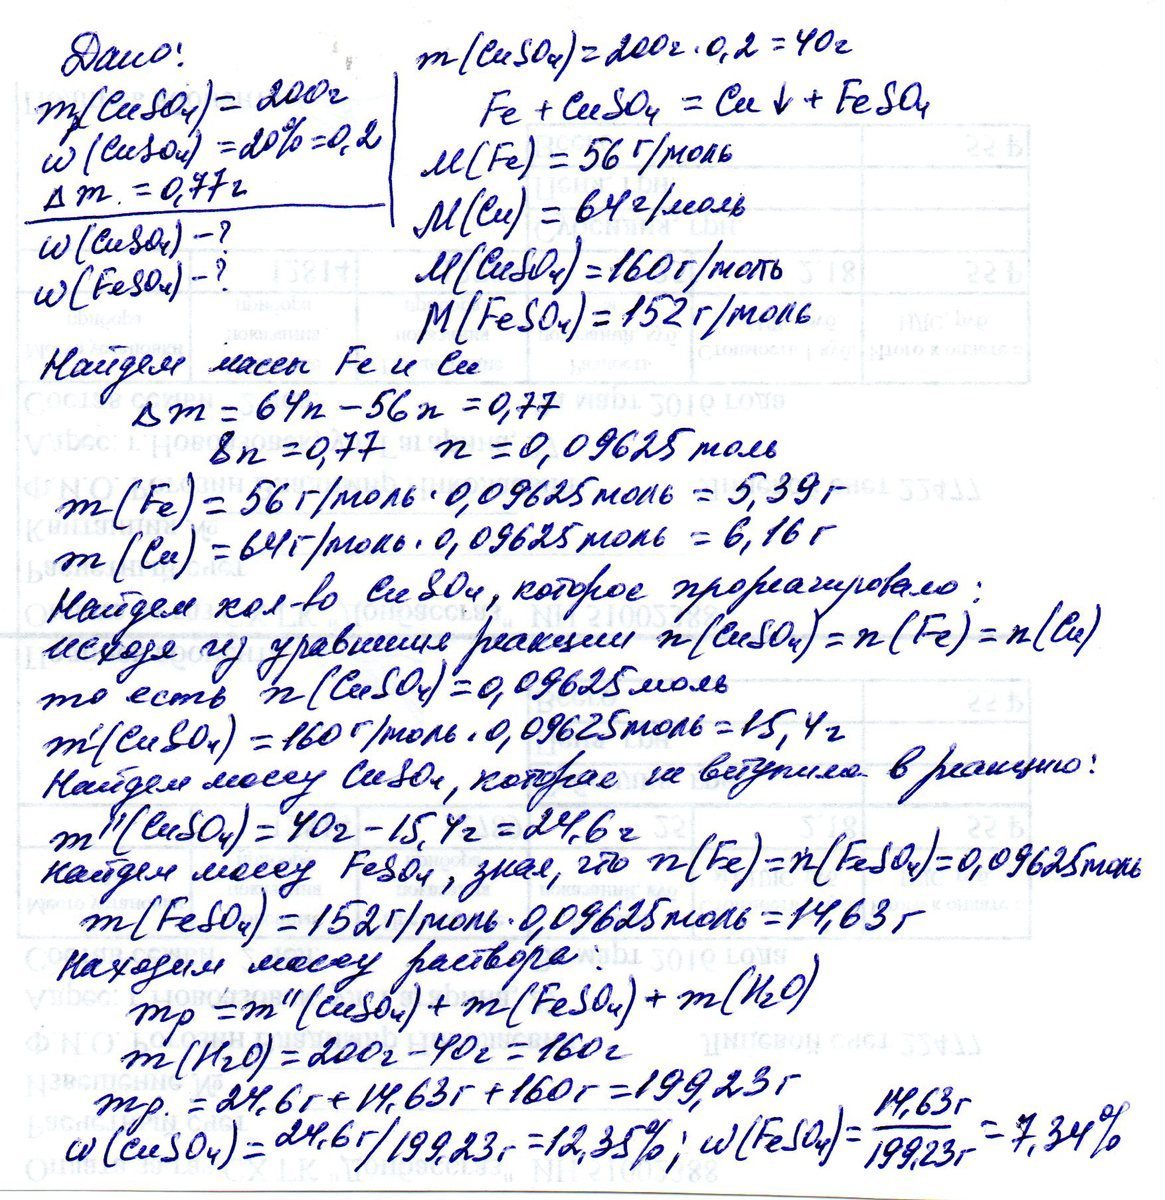 Дано:
m(CuSO₄) = 200г
w(CuSO₄) = 20% = 0,2
Δm. = 0,77г
w(CuSO₄) - ?
w(FeSO₄) - ?
m(CuSO₄) = 200г · 0,2 = 40г
Fe + CuSO₄ = Cu↓ + FeSO₄
M(Fe) = 56 г/моль
M(Cu) = 64 г/моль
M(CuSO₄) = 160 г/моль
M(FeSO₄) = 152 г/моль
Найдем массы Fe и Cu
Δm = 64n - 56n = 0,77
8n = 0,77 n = 0,09625 моль
m(Fe) = 56 г/моль · 0,09625 моль = 5,39 г
m(Cu) = 64 г/моль · 0,09625 моль = 6,16 г
Найдем кол-во CuSO₄, которое прореагировало:
исходя из уравнения реакции n(CuSO₄) = n(Fe) = n(Cu)
то есть n(CuSO₄) = 0,09625 моль
m'(CuSO₄) = 160 г/моль · 0,09625 моль = 15,4 г
Найдем массу CuSO₄, которая не вступила в реакцию:
m''(CuSO₄) = 40г - 15,4г = 24,6г
Найдем массу FeSO₄, зная, что n(Fe) = n(FeSO₄) = 0,09625 моль
m(FeSO₄) = 152 г/моль · 0,09625 моль = 14,63 г
Находим массу раствора:
mр = m''(CuSO₄) + m(FeSO₄) + m(H₂O)
m(H₂O) = 200г - 40г = 160г
mр. = 24,6г + 14,63г + 160г = 199,23г
w(CuSO₄) = 24,6г/199,23г = 12,35%; w(FeSO₄) = 14,63г/199,23г = 7,34%